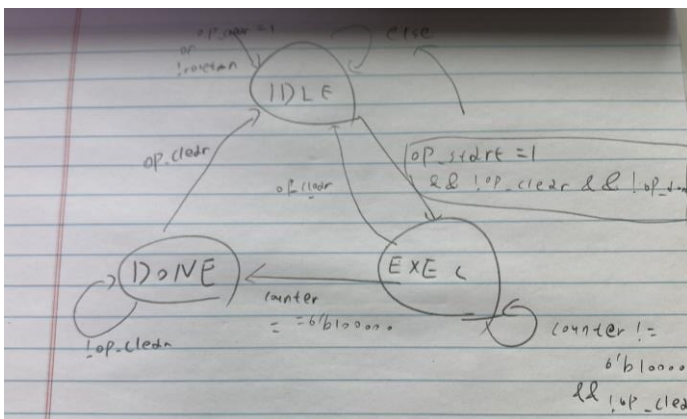 op_clear = 1
or
else
IDLE
op_clear
op_start = 1
&& !op_clear && !op_don
op_clear
DONE
EXEC
counter
= =6'b100000
!op_clear
counter !=
6'b10000
&& !op_clea